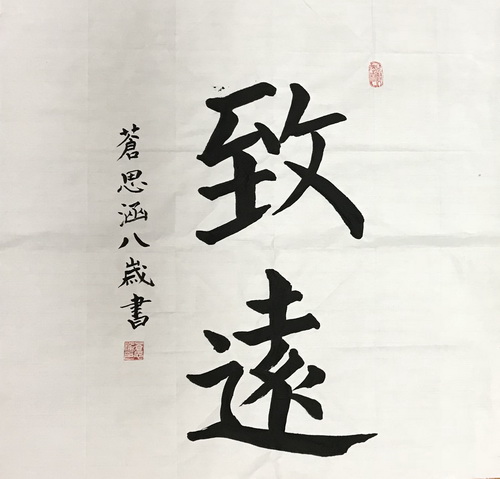 致遠
蒼思涵八歲書